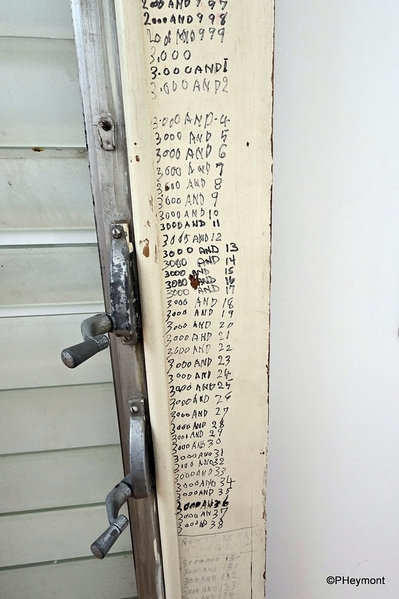 2000 AND 997
2000 AND 998
2000 AND 999
3.000
3.000 AND 1
3.000 AND 2
3.000 AND 4
3000 AND 5
3000 AND 6
3000 AND 7
3000 AND 8
3000 AND 9
3000 AND 10
3000 AND 11
3005 AND 12
3000 AND 13
3000 AND 14
3000 AND 15
3000 AND 16
3000 AND 17
3000 AND 18
3000 AND 19
3000 AND 20
3000 AND 21
3000 AND 22
3000 AND 23
3000 AND 24
3000 AND 25
3000 AND 26
3000 AND 27
3000 AND 28
3000 AND 29
3000 AND 30
3000 AND 31
3000 AND 32
3000 AND 33
3000 AND 34
3000 AND 35
3000 AND 36
3000 AN 37
3000 AND 38
3000 AND 131
3000 AND 132
3000 AND 133
©PHeymont